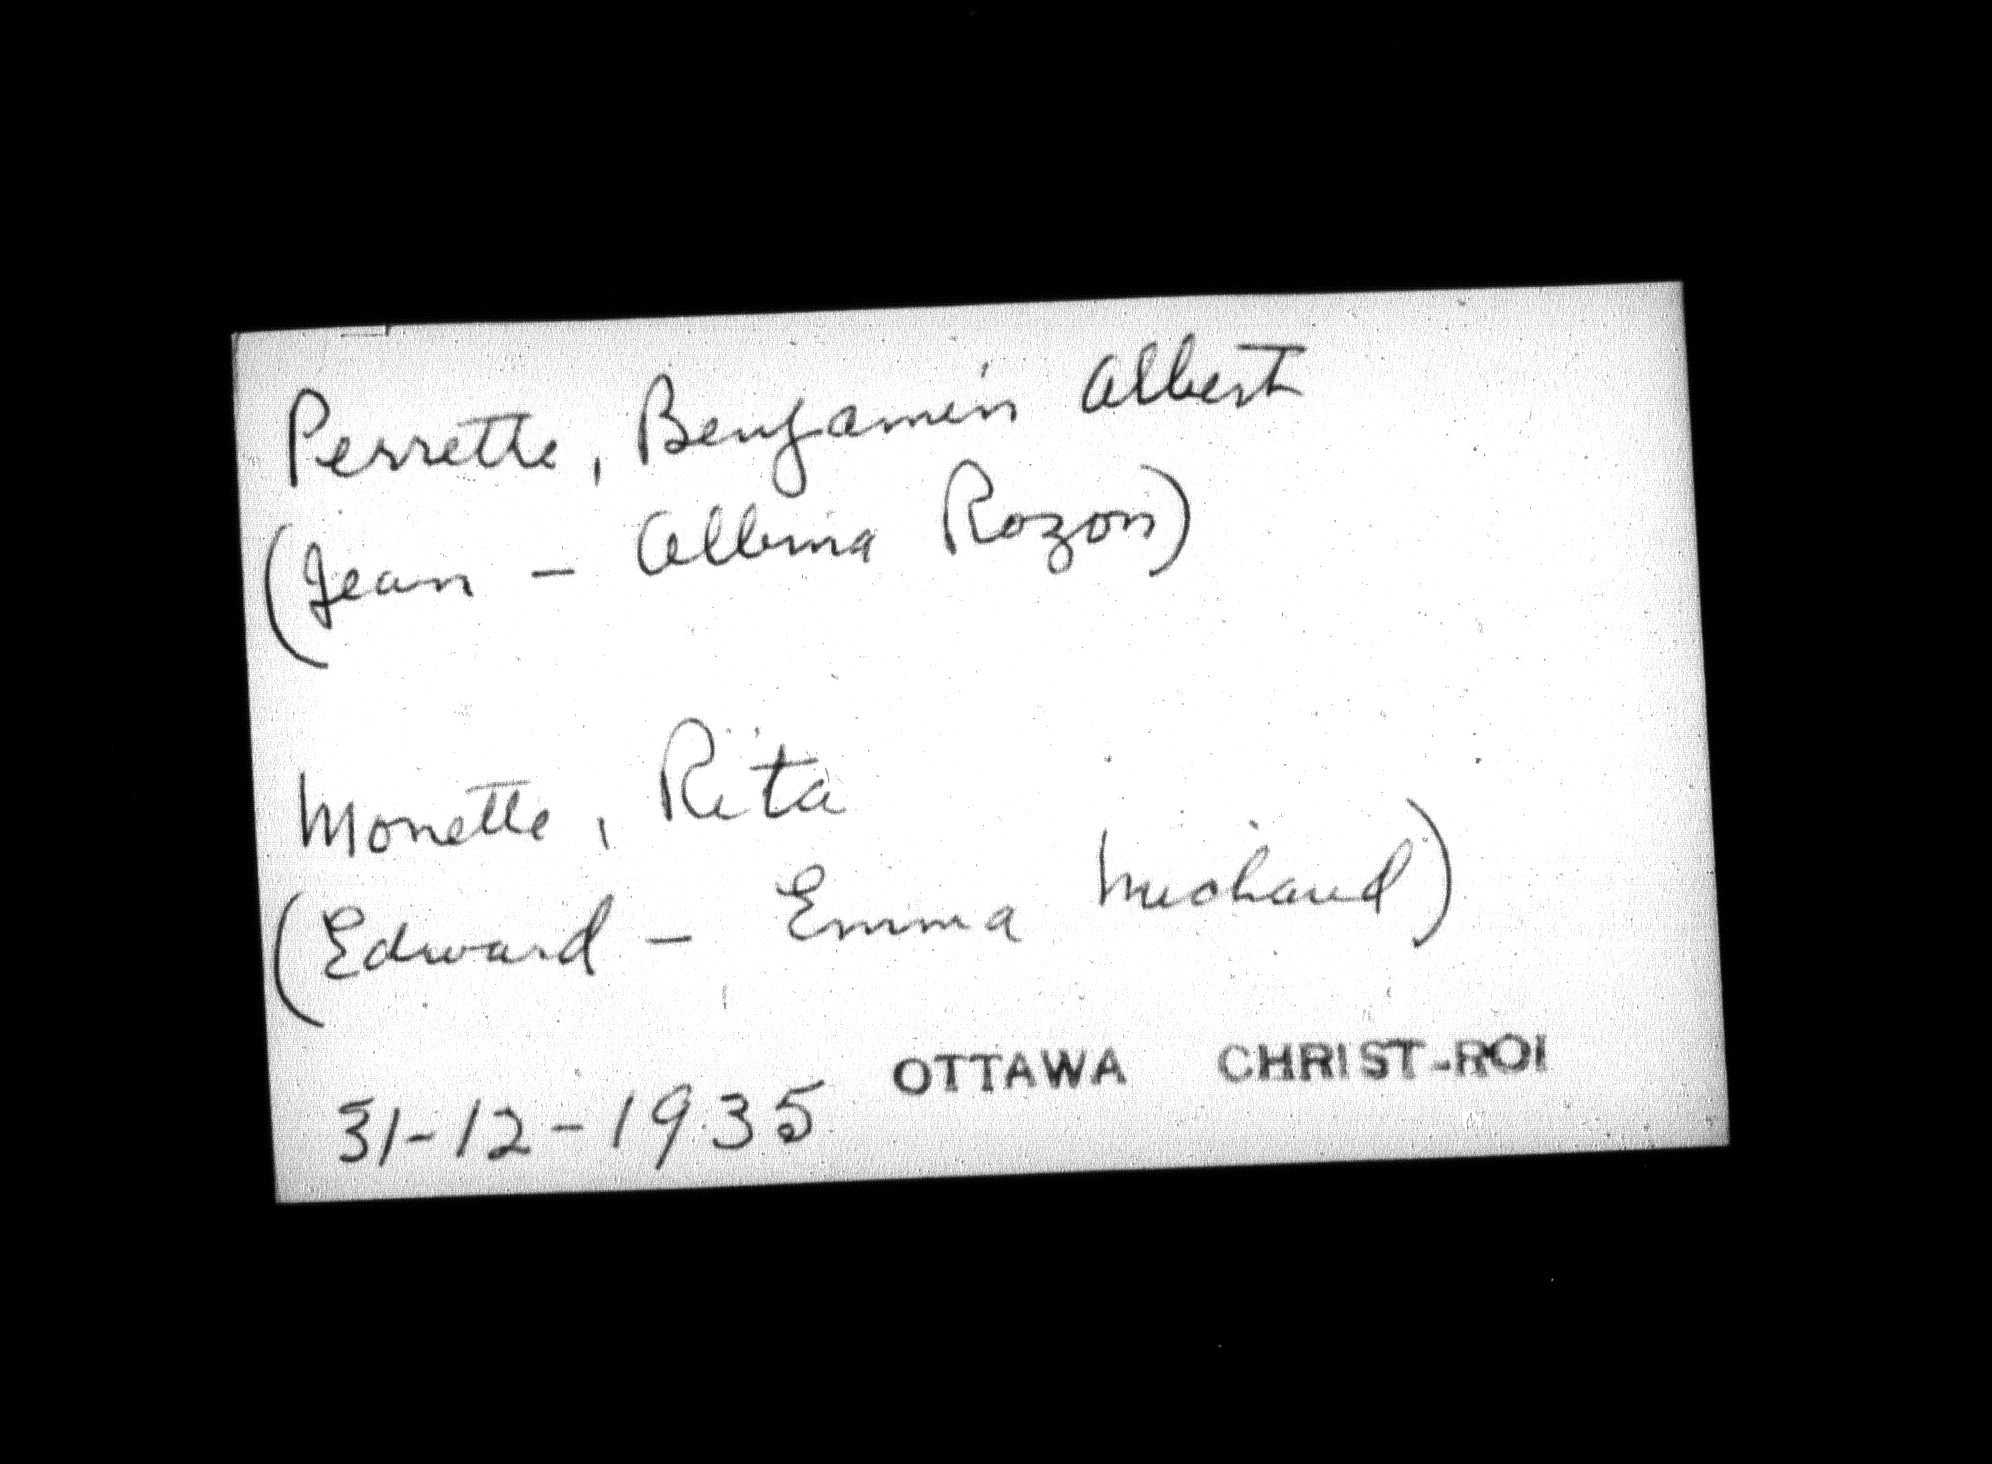 Perrette, Benjamin Albert
(Jean - Albina Rozon)
Monette, Rita
(Edward - Emma Michaud)
OTTAWA CHRIST-ROI
31-12-1935